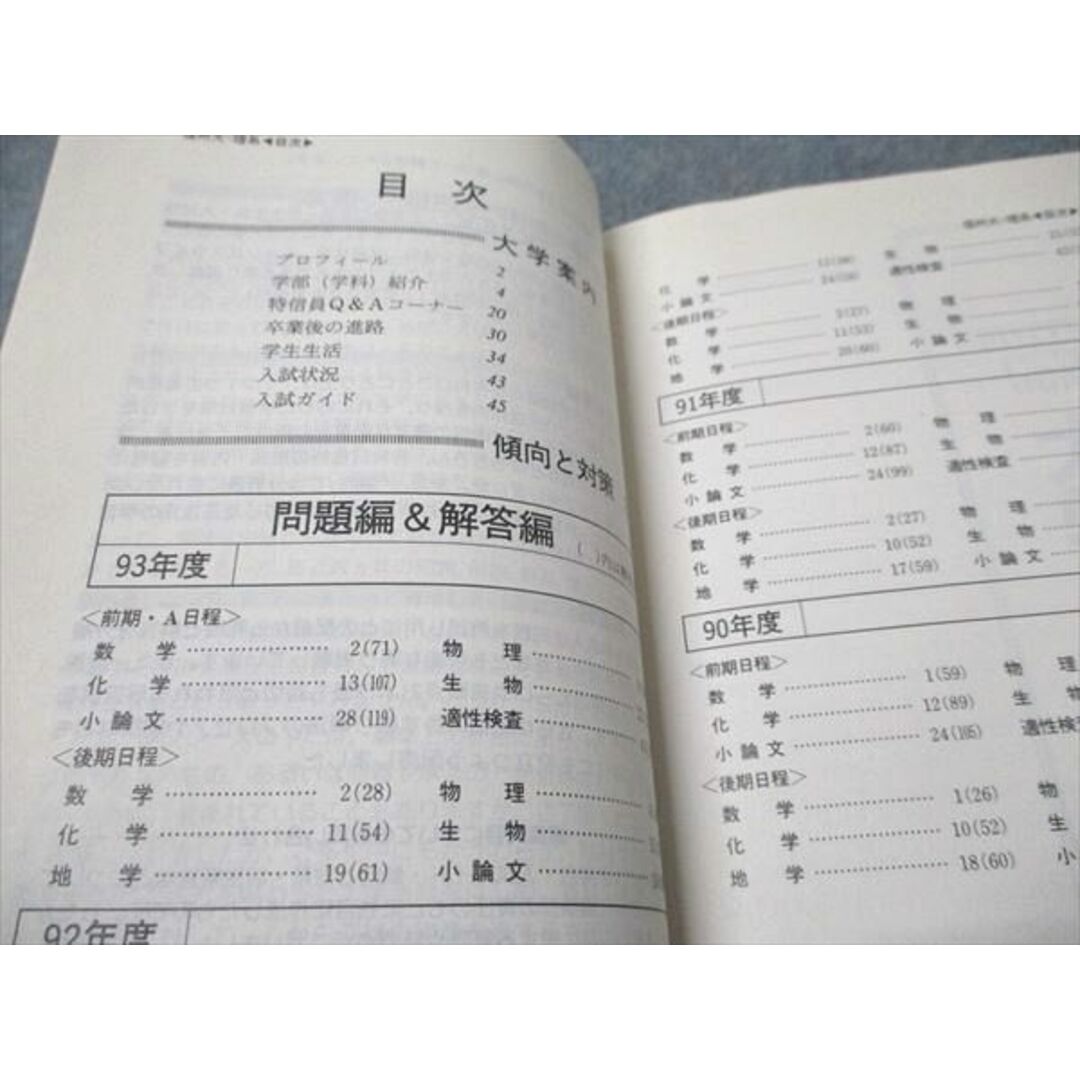 目次
大学案内
プロフィール 2
学部（学科）紹介 4
特信員Q＆Aコーナー 20
卒業後の進路 30
学生生活 34
入試状況 43
入試ガイド 45
傾向と対策
問題編＆解答編
93年度
＜前期・A日程＞
数学 2(71) 物理
化学 13(107) 生物
小論文 28(119) 適性検査
＜後期日程＞
数学 2(28) 物理
化学 11(54) 生物
地学 19(61) 小論文
92年度
化学 生物
小論文 適性検査
＜後期日程＞
数学 2(27) 物理
化学 11(53) 生物
地学 20(60) 小論文
91年度
＜前期日程＞
数学 2(60) 物理
化学 12(87) 生物
小論文 24(99) 適性検査
＜後期日程＞
数学 2(27) 物理
化学 10(52) 生物
地学 17(59) 小論文
90年度
＜前期日程＞
数学 1(59) 物理
化学 12(89) 生物
小論文 24(105) 適性検査
＜後期日程＞
数学 1(26) 物
化学 10(52) 生
地学 18(60) 小